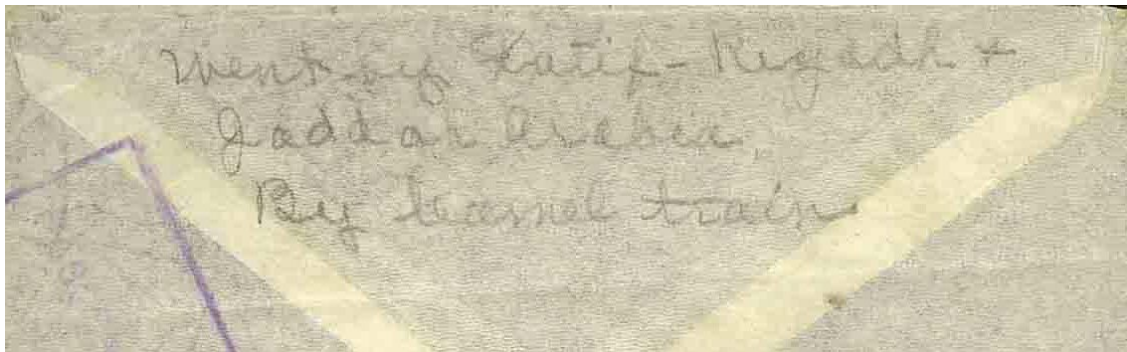 Went by Katif - Riyadh +
Jaddah Arabia
By Camel train